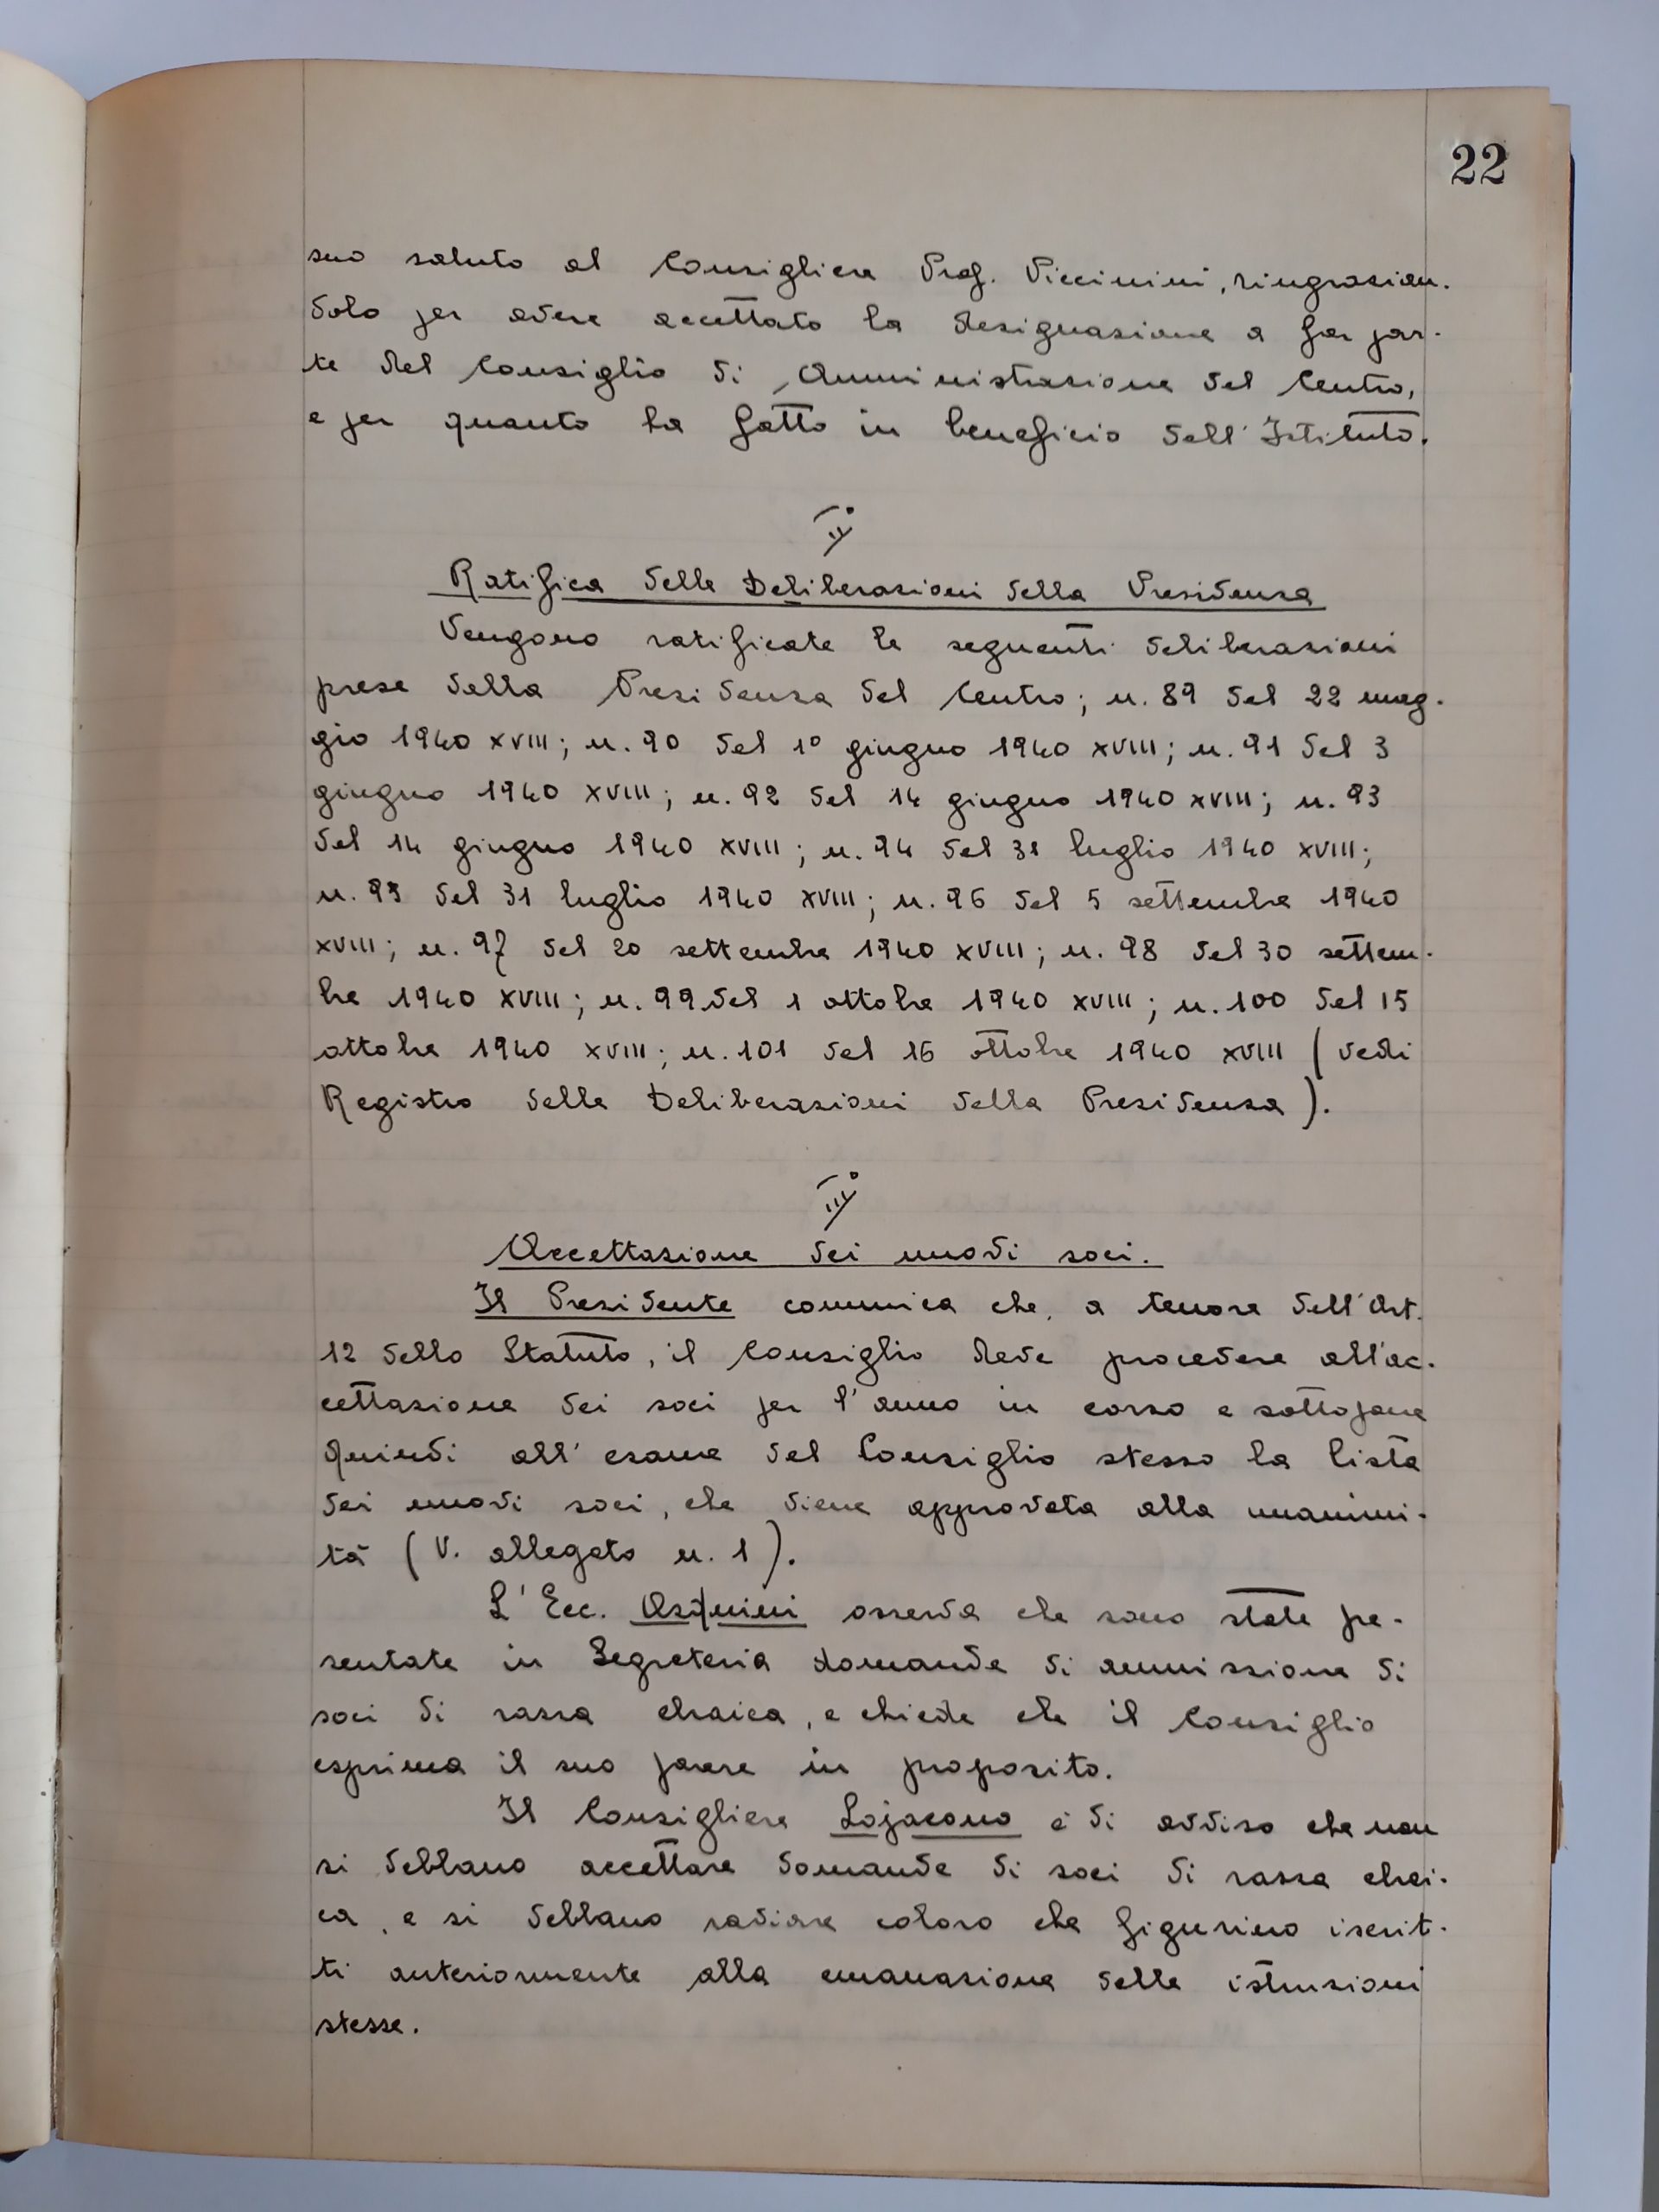 22
suo saluto al Consigliere Prof. Piccinini, ringrazian-
dolo per avere accettato la designazione a far par-
te del Consiglio di Amministrazione del Centro,
e per quanto ha fatto in beneficio dell'Istituto.
II°
Ratifica delle Deliberazioni della Presidenza
Vengono ratificate le seguenti deliberazioni
prese dalla Presidenza del Centro; n. 89 del 22 mag-
gio 1940 XVIII; n. 90 del 1° giugno 1940 XVIII; n. 91 del 3
giugno 1940 XVIII; n. 92 del 14 giugno 1940 XVIII; n. 93
del 14 giugno 1940 XVIII; n. 94 del 31 luglio 1940 XVIII;
n. 95 del 31 luglio 1940 XVIII; n. 96 del 5 settembre 1940
XVIII; n. 97 del 20 settembre 1940 XVIII; n. 98 del 30 settem-
bre 1940 XVIII; n. 99 del 1 ottobre 1940 XVIII; n. 100 del 15
ottobre 1940 XVIII; n. 101 del 16 ottobre 1940 XVIII (vedi
Registro delle Deliberazioni della Presidenza).
III°
Accettazione dei nuovi soci.
Il Presidente comunica che, a tenore dell'Art.
12 dello Statuto, il Consiglio deve procedere all'ac-
cettazione dei soci per l'anno in corso e sottopone
quindi all'esame del Consiglio stesso la lista
dei nuovi soci, che viene approvata alla unanimi-
tà (V. allegato n. 1).
L'Ecc. Asquini osserva che sono state pre-
sentate in Segreteria domande di ammissione di
soci di razza ebraica, e chiede che il Consiglio
esprima il suo parere in proposito.
Il Consigliere Lojacono è di avviso che non
si debbano accettare domande di soci di razza ebrai-
ca, e si debbano radiare coloro che figurino iscrit-
ti anteriormente alla emanazione delle istruzioni
stesse.